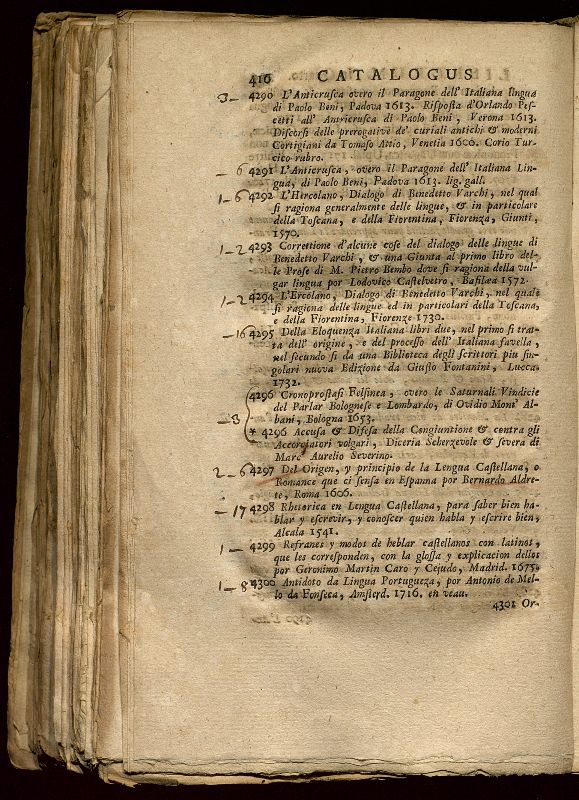 410 CATALOGUS
3— 4290 L'Anticrusca overo il Paragone dell' Italiana lingua
di Paolo Beni, Padova 1613. Risposta d'Orlando Pes-
cetti all' Anticrusca di Paolo Beni, Verona 1613.
Discorsi delle prerogative de' curiali antichi & moderni
Cortigiani da Tomaso Attio, Venetia 1600. Corio Tur-
cico rubro.
— 6 4291 L'Anticrusca, overo il Paragone dell' Italiana Lin-
gua, di Paolo Beni, Padova 1613. lig. gall.
1— 6 4292 L'Hercolano, Dialogo di Benedetto Varchi, nel qual
si ragiona generalmente delle lingue, & in particolare
della Toscana, e della Fiorentina, Fiorenza, Giunti,
1570.
1— 2 4293 Correttione d'alcune cose del dialogo delle lingue di
Benedetto Varchi, & una Giunta al primo libro del-
le Prose di M. Pietro Bembo dove si ragiona della vul-
gar lingua por Lodovico Castelvetro, Basilæa 1572.
1— 2 4294 L'Ercolano, Dialogo di Benedetto Varchi, nel quale
si ragiona delle lingue ed in particolari della Toscana,
e della Fiorentina, Fiorenze 1730.
— 16 4295 Della Eloquenza Italiana libri due, nel primo si trat-
ta dell' origine, e del processo dell' Italiana favella,
nel secundo si da una Biblioteca degli scrittori piu sin-
golari nuova Edizione da Giusto Fontanini, Lucca
1732.
4296 Cronoprostasi Felsinea, overo le Saturnali Vindicie
del Parlar Bolognese e Lombardo, di Ovidio Mont' Al-
— 3 bani, Bologna 1653.
* 4296 Accusa & Difesa della Congiuntione & contra gli
Accorciatori volgari, Diceria Scherzevole & severa di
Marc' Aurelio Severino.
2— 6 4297 Del Origen, y principio de la Lengua Castellana, o
Romance que ci sensa en Espanna por Bernardo Aldre-
te, Roma 1606.
— 17 4298 Rhetorica en Lengua Castellana, para saber bien ha-
blar y escrevir, y conoscer quien habla y escrire bien,
Alcala 1541.
1— 4299 Refranes y modos de heblar castellanos con latinos,
que les corresponden, con la glossa y explicacion dellos
por Geronimo Martin Caro y Cejudo, Madrid. 1675.
1— 8 4300 Antidoto da Lingua Portugueza, por Antonio de Mel-
lo da Fonseca, Amsterd. 1716. en veau.
4301 Or-